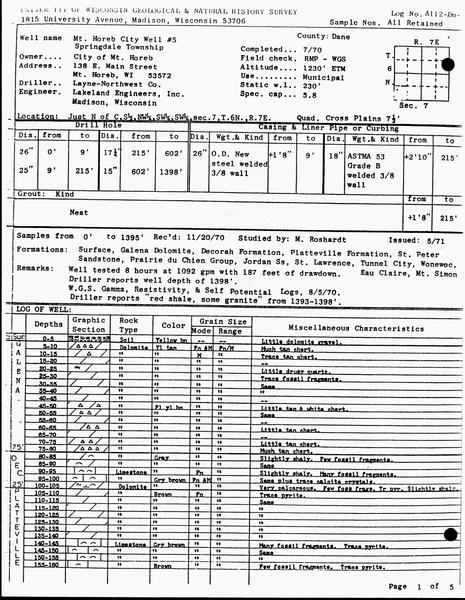 UNIVERSITY OF WISCONSIN GEOLOGICAL & NATURAL HISTORY SURVEY
Log No. A112-Dn-
1815 University Avenue, Madison, Wisconsin 53706
Sample Nos. All Retained
Well name Mt. Horeb City Well #5
Springdale Township
County: Dane
R. 7E
Completed... 7/70
Owner.... City of Mt. Horeb
Field check. RMP - WGS
Address.. 138 E. Main Street
Altitude... 1230' ETM
Mt. Horeb, WI 53572
Use........ Municipal
Driller.. Layne-Northwest Co.
Static w.l. 230'
Engineer. Lakeland Engineers, Inc.
Spec. cap.. 5.8
Madison, Wisconsin
T. 6 N.
Sec. 7
Location: Just N of C,S½,NW¼,SW¼,SW¼,sec.7,T.6N.,R.7E. Quad. Cross Plains 7½'
Drill Hole Casing & Liner Pipe or Curbing
Dia. from to Dia. from to Dia. Wgt.& Kind from to Dia. Wgt.& Kind from to
26" 0' 9' 17¼" 215' 602' 26" O.D. New steel welded 3/8 wall +1'8" 9' 18" ASTMA 53 Grade B welded 3/8 wall +2'10" 215'
25" 9' 215' 15" 602' 1398'
Grout: Kind from to
Neat +1'8" 215'
Samples from 0' to 1395' Rec'd: 11/20/70 Studied by: M. Roshardt Issued: 5/71
Formations: Surface, Galena Dolomite, Decorah Formation, Platteville Formation, St. Peter
Sandstone, Prairie du Chien Group, Jordan Ss, St. Lawrence, Tunnel City, Wonewoc,
Eau Claire, Mt. Simon
Remarks: Well tested 8 hours at 1092 gpm with 187 feet of drawdown.
Driller reports well depth of 1398'.
W.G.S. Gamma, Resistivity, & Self Potential Logs, 8/5/70.
Driller reports "red shale, some granite" from 1393-1398'.
LOG OF WELL:
Depths Graphic Section Rock Type Color Grain Size Mode Range Miscellaneous Characteristics
0-5 Soil Yellow bn -- -- Little dolomite gravel.
GALENA
5-10 Dolomite Yl tan Fn &M Fn/M Much tan chert.
10-15 " " M " Trace tan chert.
15-20 " " " " --
20-25 " " " " Little drusy quartz.
25-30 " " " " Trace fossil fragments.
30-35 " " " " Same
35-40 " " " " --
40-45 " " " " --
45-50 " Pl yl bn " " Little tan & white chert.
50-55 " " " " Same
55-60 " " " " --
60-65 " " " " Little tan chert.
65-70 " " " " --
70-75 " " " " Little tan chert.
75' 75-80 " " " " Much tan chert.
DEC.
80-85 " Gray " " Slightly shaly. Few fossil fragments.
85-90 " " " " Same
90-95 Limestone " Fn " Slightly shaly. Many fossil fragments.
95-100 " Gry brown Fn &M " Same plus trace calcite crystals.
25' 100-105 Dolomite " " " Very calcareous. Few foss frags. Tr pyr. Slightly shaly.
PLATTEVILLE
105-110 " Brown Fn " Trace pyrite.
110-115 " " " " Same
115-120 " " " " --
120-125 " " " " --
125-130 " " " " --
130-135 " " " " --
135-140 " " " " --
140-145 Limestone Gry brown " " Many fossil fragments. Trace pyrite.
145-150 " " " " Same
150-155 " " " " Same
155-160 " Brown " " Few fossil fragments. Trace pyrite.
Page 1 of 5